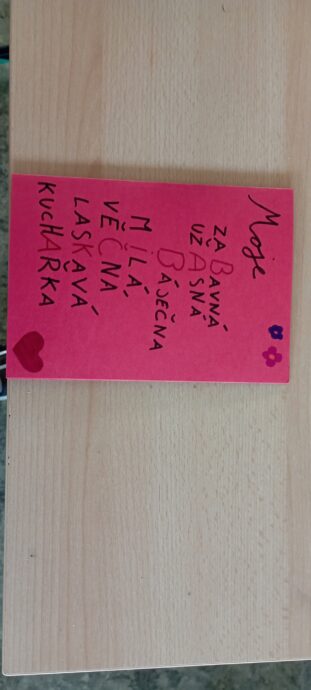 Moje
ZABAVNÁ
UŽASNÁ
BÁJEČNA
MILÁ
VĚČNÁ
LASKAVÁ
KUCHAŘKA